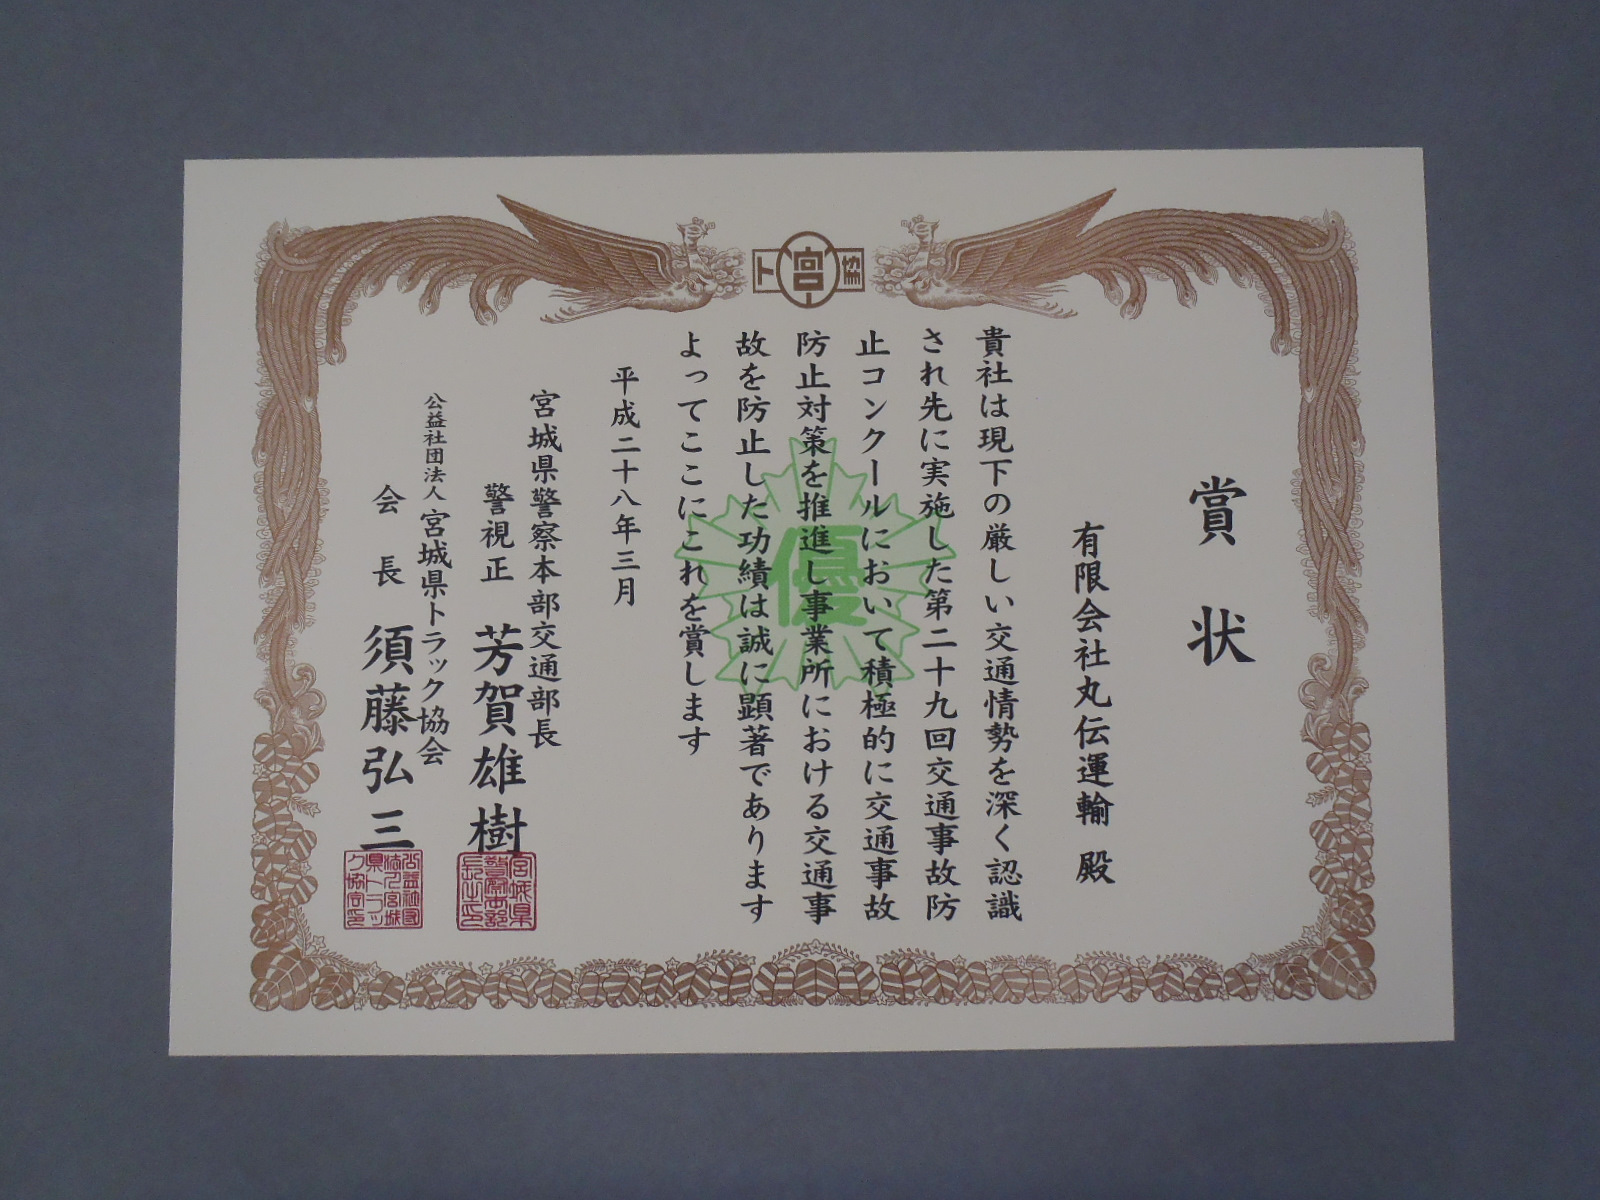 ト宮協
賞状
有限会社丸伝運輸 殿
貴社は現下の厳しい交通情勢を深く認識
され先に実施した第二十九回交通事故防
止コンクールにおいて積極的に交通事故
防止対策を推進し事業所における交通事
故を防止した功績は誠に顕著であります
よってここにこれを賞します
優
平成二十八年三月
宮城県警察本部交通部長
警視正 芳賀雄樹
公益社団法人 宮城県トラック協会
会長 須藤弘三